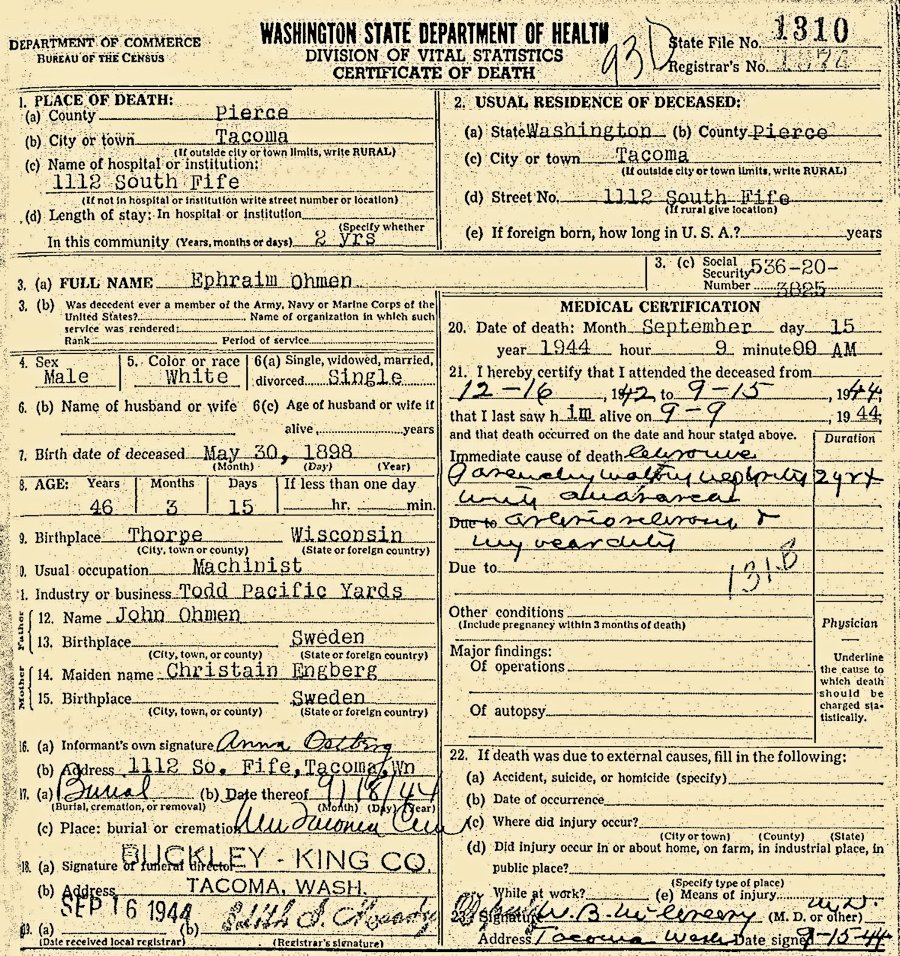 DEPARTMENT OF COMMERCE
BUREAU OF THE CENSUS
WASHINGTON STATE DEPARTMENT OF HEALTH
DIVISION OF VITAL STATISTICS
CERTIFICATE OF DEATH
93D
State File No. 1310
Registrar's No. 1574
1. PLACE OF DEATH:
(a) County Pierce
(b) City or town Tacoma
(If outside city or town limits, write RURAL)
(c) Name of hospital or institution:
1112 South Fife
(If not in hospital or institution write street number or location)
(d) Length of stay: In hospital or institution
(Specify whether
In this community (Years, months or days) 2 yrs
2. USUAL RESIDENCE OF DECEASED:
(a) State Washington (b) County Pierce
(c) City or town Tacoma
(If outside city or town limits, write RURAL)
(d) Street No. 1112 South Fife
(If rural give location)
(e) If foreign born, how long in U. S. A.? years
3. (a) FULL NAME Ephraim Ohmen
3. (c) Social Security Number 536-20-3825
3. (b) Was decedent ever a member of the Army, Navy or Marine Corps of the
United States? Name of organization in which such
service was rendered:
Rank Period of service
4. Sex Male
5. Color or race White
6(a) Single, widowed, married, divorced Single
6. (b) Name of husband or wife
6(c) Age of husband or wife if
alive, years
7. Birth date of deceased May 30, 1898
(Month) (Day) (Year)
8. AGE: Years Months Days If less than one day
46 3 15 hr. min.
9. Birthplace Thorpe Wisconsin
(City, town or county) (State or foreign country)
0. Usual occupation Machinist
1. Industry or business Todd Pacific Yards
Father
12. Name John Ohmen
13. Birthplace Sweden
(City, town, or county) (State or foreign country)
Mother
14. Maiden name Christain Engberg
15. Birthplace Sweden
(City, town, or county) (State or foreign country)
16. (a) Informant's own signature Anna Ostberg
(b) Address 1112 So. Fife, Tacoma, Wn
17. (a) Burial (b) Date thereof 9/18/44
(Burial, cremation, or removal) (Month) (Day) (Year)
(c) Place: burial or cremation New Tacoma Cem
18. (a) Signature of funeral director BUCKLEY - KING CO.
(b) Address TACOMA, WASH.
SEP 16 1944
19. (a) (b) Edith S.
(Date received local registrar) (Registrar's signature)
MEDICAL CERTIFICATION
20. Date of death: Month September day 15
year 1944 hour 9 minute 00 AM
21. I hereby certify that I attended the deceased from
12-16, 1942 to 9-15, 1944,
that I last saw h im alive on 9-9, 1944,
and that death occurred on the date and hour stated above.
Duration
Immediate cause of death
nephritis 2 yrs
with anasarca
Due to arteriosclerosis &
myocarditis
Due to
131B
Other conditions
(Include pregnancy within 3 months of death)
Major findings:
Of operations
Of autopsy
Physician
Underline
the cause to
which death
should be
charged sta-
tistically.
22. If death was due to external causes, fill in the following:
(a) Accident, suicide, or homicide (specify)
(b) Date of occurrence
(c) Where did injury occur?
(City or town) (County) (State)
(d) Did injury occur in or about home, on farm, in industrial place, in
public place?
(Specify type of place)
While at work? (e) Means of injury
23. Signature W. B. McCreery M.D. (M. D. or other)
Address Tacoma Wash Date signed 9-15-44